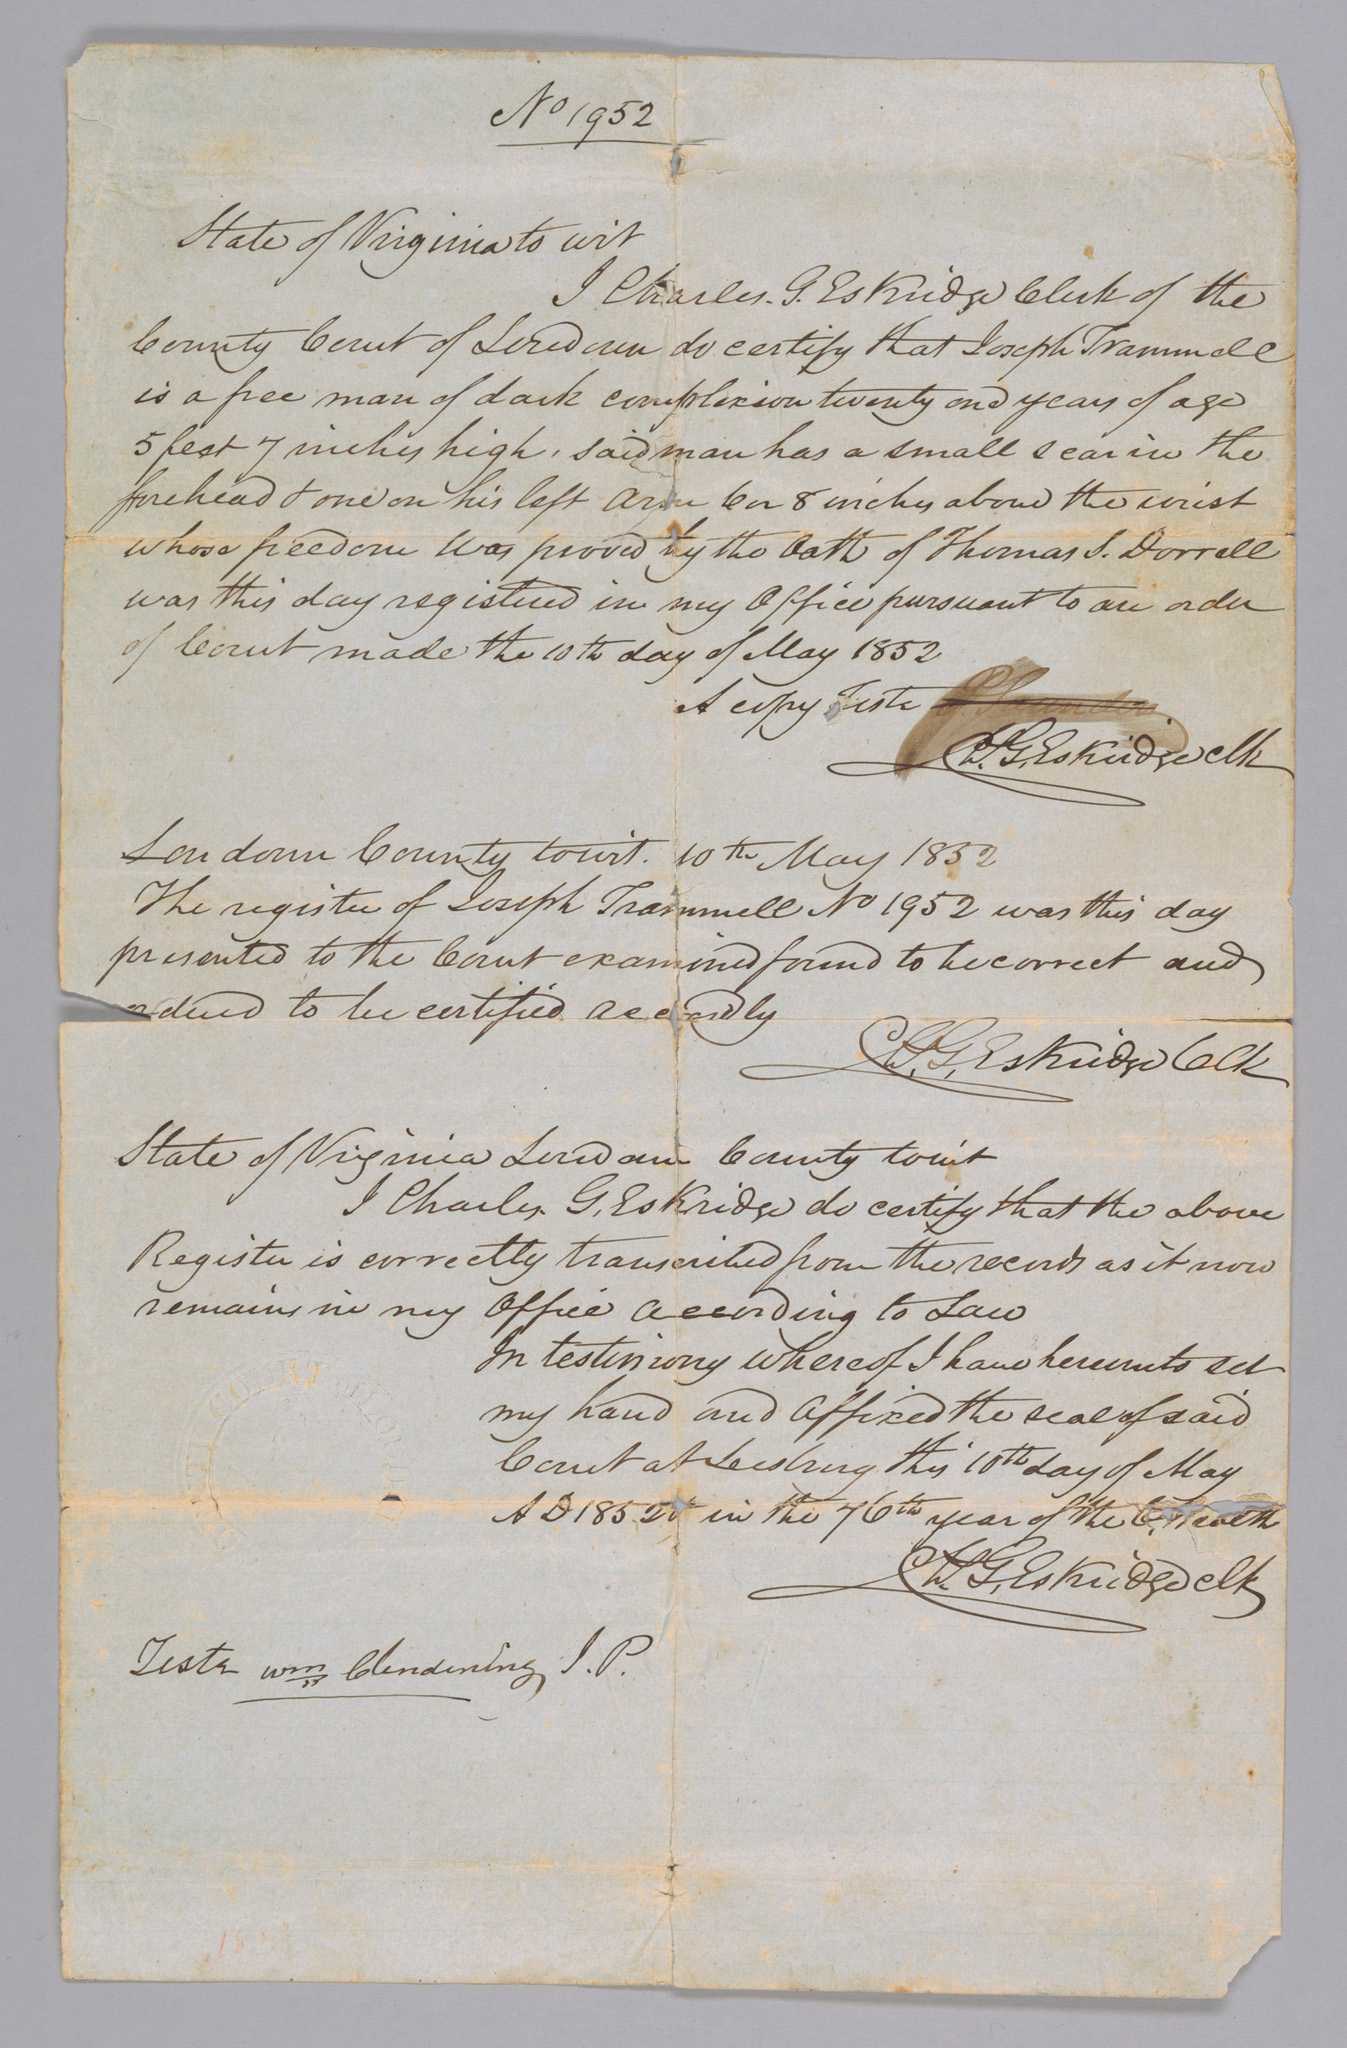 No 1952
State of Virginia to wit
I Charles. G. Eskridge Clerk of the
County Court of Loudoun do certify that Joseph Trammell
is a free man of dark complexion twenty one years of age
5 feet 7 inches high, said man has a small scar in the
forehead & one on his left arm 6 or 8 inches above the wrist
whose freedom was proved by the Oath of Thomas S. Dorrell
was this day registered in my Office pursuant to an order
of Court made the 10th day of May 1852
A copy Teste
Ch. G. Eskridge clk
Loudoun County towit. 10th May 1852
The register of Joseph Trammell No 1952 was this day
presented to the Court examined found to be correct and
ordered to be certified accordly
Ch. G. Eskridge Clk
State of Virginia Loudoun County towit
I Charles. G. Eskridge do certify that the above
Register is correctly transcribed from the records as it now
remains in my Office according to Law
In testimony whereof I have hereunto set
my hand and affixed the seal of said
Court at Leesburg this 10th day of May
A D 1852 in the 76th year of the
Ch. G. Eskridge clk
Teste Wm Clendening J. P.